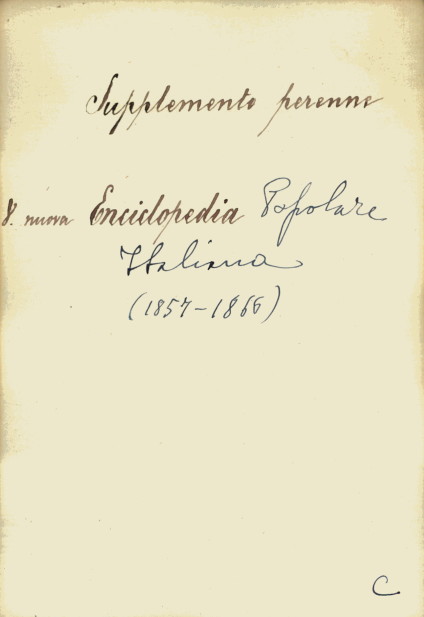 Supplemento perenne
8. nuova Enciclopedia Popolare
Italiana
(1857-1866)
C